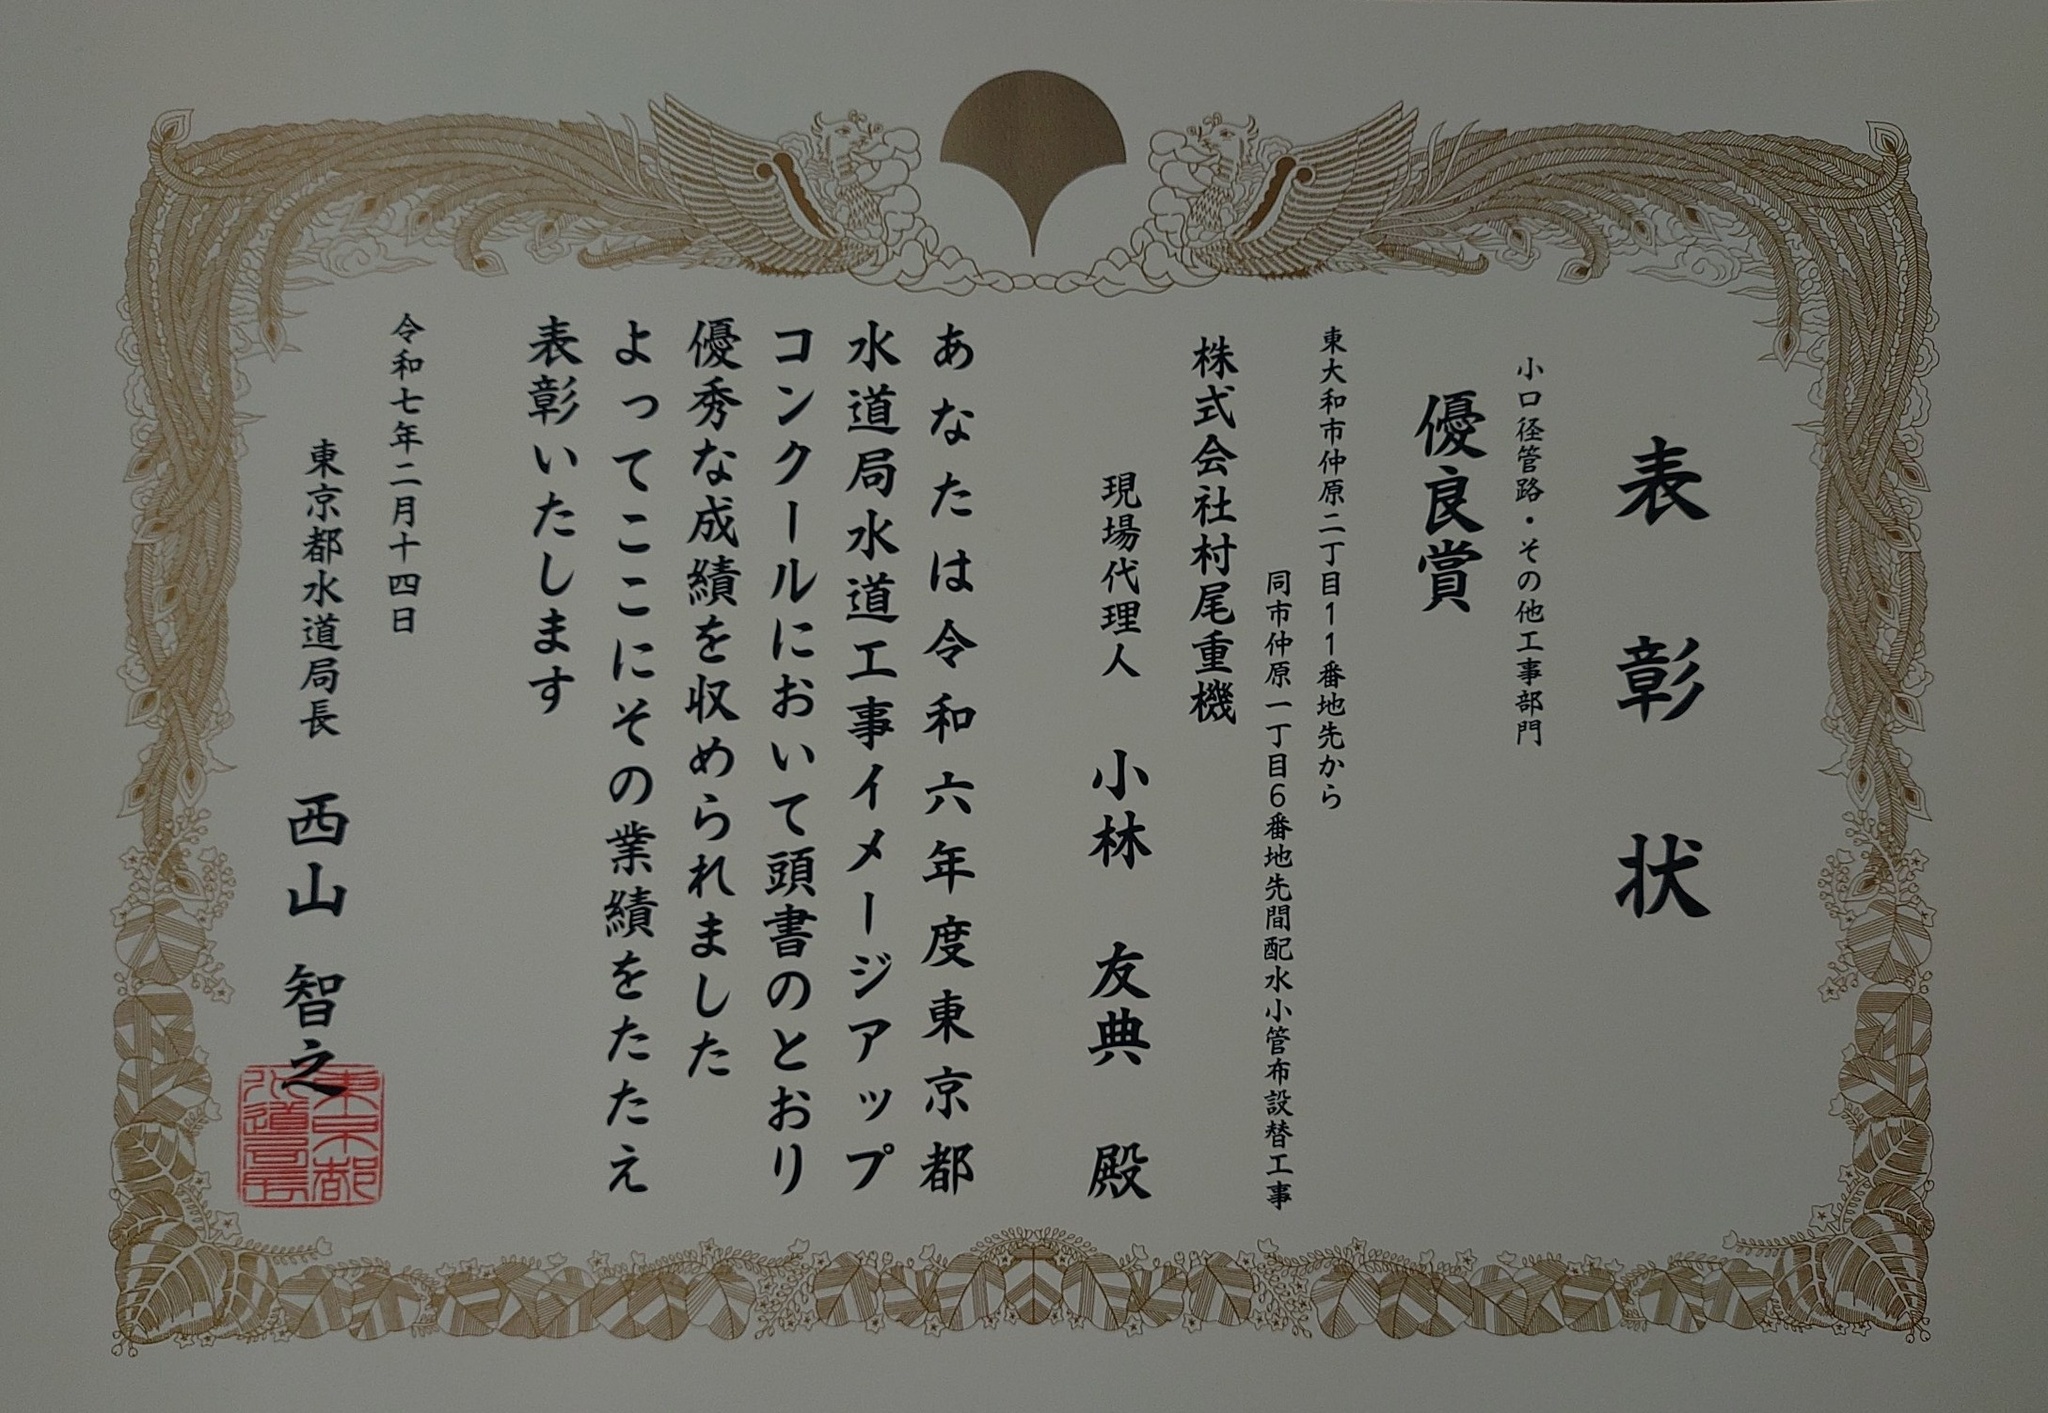 表彰状
小口径管路・その他工事部門
優良賞
東大和市仲原二丁目11番地先から
同市仲原一丁目6番地先間配水小管布設替工事
株式会社村尾重機
現場代理人 小林 友典 殿
あなたは令和六年度東京都
水道局水道工事イメージアップ
コンクールにおいて頭書のとおり
優秀な成績を収められました
よってここにその業績をたたえ
表彰いたします
令和七年二月十四日
東京都水道局長 西山 智之
東京都
水道局長